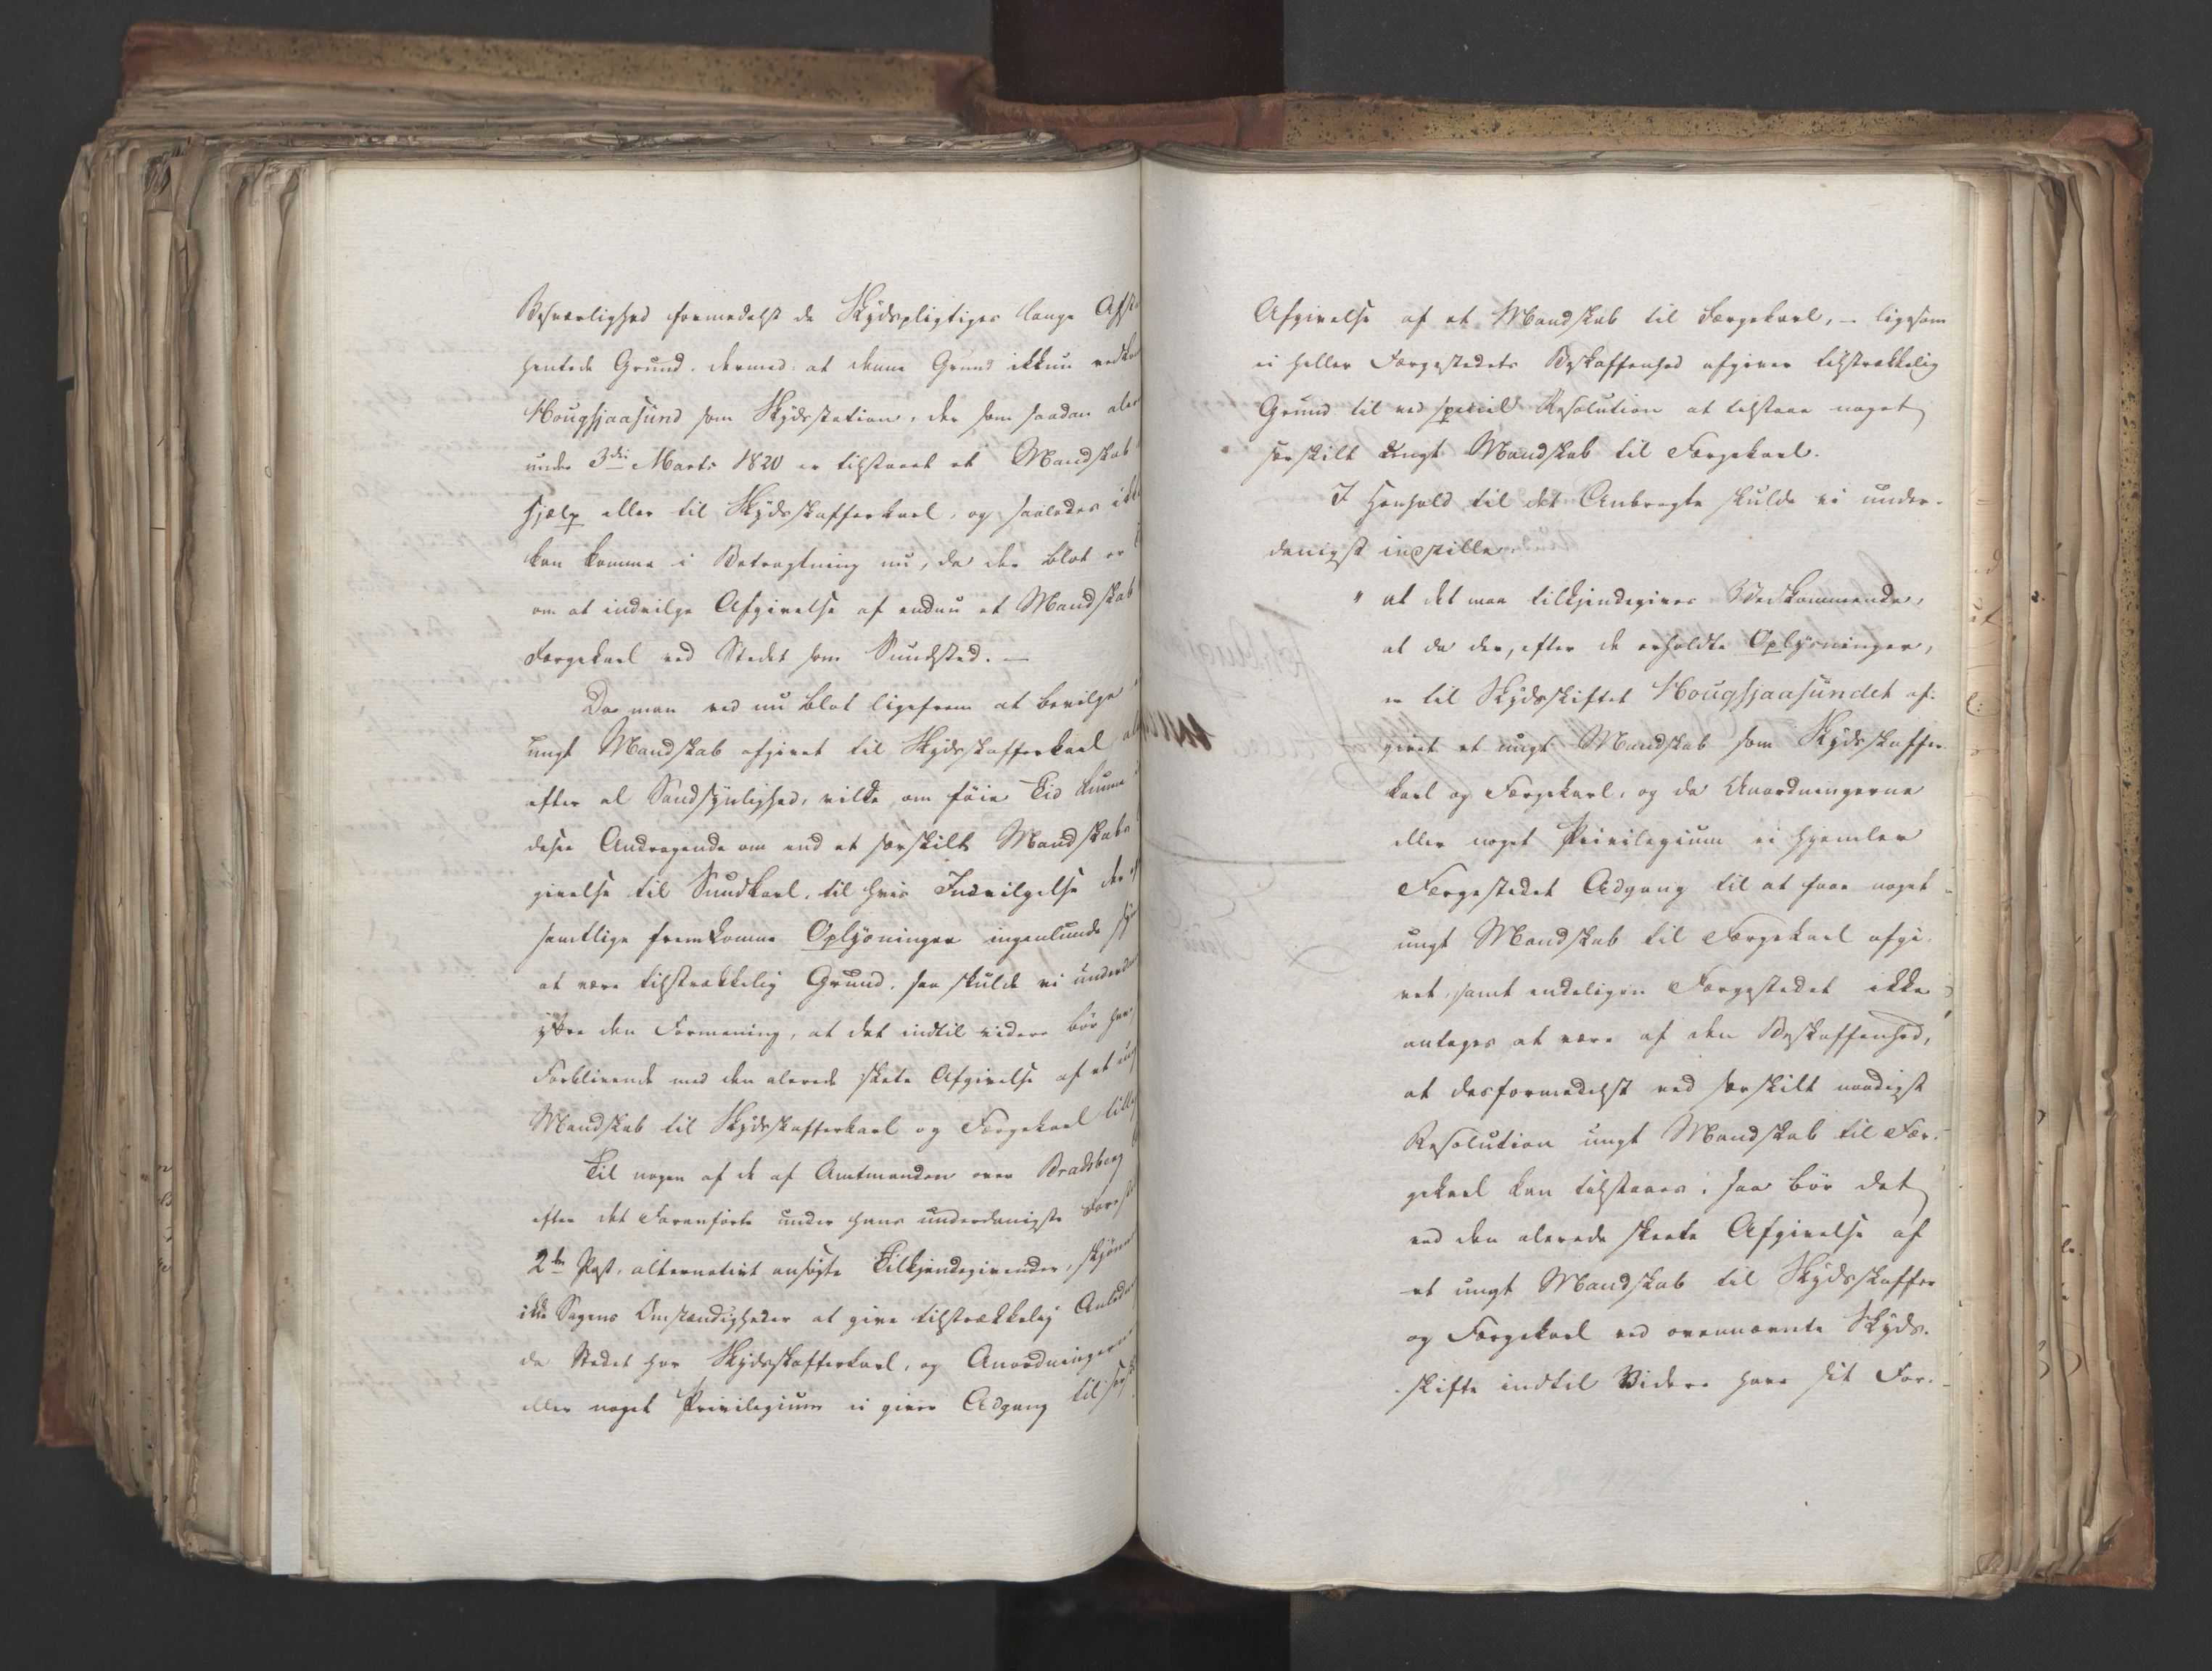 Besværlighed formedelst de Skydspligtiges lange Afsta
hentede Grund, dermed: at denne Grund ikkun vedko
Hougsjaasund som Skydsstation, der som saadan aler
under 3die Marts 1820 er tilstaaet et Mandskab
hjelp eller til Skydsskafferkarl, og saaledes ikke
kan komme i Betragtning nu, da der blot er
om at indvilge Afgivelse af endnu et Mandskab
Færgekarl ved Stedet som Sundsted. —
Da man ved nu blot ligefrem at bevilge
ungt Mandskab afgivet til Skydsskafferkarl
efter al Sandsynlighed, vilde, om føie Tid kunne
disse Andragende om end et særskilt Mandskabs
givelse til Sundkarl, til hvis Indvilgelse der
samtlige fremkomne Oplysninger ingenlunde
at være tilstrækkelig Grund, saa skulde vi underd
yttre den Formening, at det indtil videre bør have
Forblivende med den alerede skete Afgivelse af et ung
Mandskab til Skydsskafferkarl og Færgekarl tillig
Til nogen af de af Amtmanden over Bradsberg
efter det Foranførte under hans underdanigste Forest
2den Post, alternativt ansøgte Tilkjendegivender, skjønne
ikke Sagens Omstændigheder at give tilstrækkelig Anledn
da Stedet har Skydsskafferkarl, og Anordningerne
eller noget Privilegium ei giver Adgang til sær
Afgivelse af et Mandskab til Færgekarl, — ligesom
ei heller Færgestedets Beskaffenhed afgiver tilstrækkelig
Grund til ved speciel Resolution at tilstaae noget
særskilt ungt Mandskab til Færgekarl.
I Henhold til det Anbragte skulde vi under-
danigst indstille:
" at det maa tilkjendegives Vedkommende,
at da der, efter de erholdte Oplysninger,
er til Skydsskiftet Hougsjaasundet af-
givet et ungt Mandskab som Skydsskaffer-
karl og Færgekarl, og da Anordningerne
eller noget Privilegium ei hjemler
Færgestedet Adgang til at faae noget
ungt Mandskab til Færgekarl afgi-
vet, samt endeligen Færgestedet ikke
antages at være af den Beskaffenhed,
at desformedelst ved særskilt naadigst
Resolution ungt Mandskab til Fær-
gekarl kan tilstaaes, saa bør det
ved den alerede skeete Afgivelse af
et ungt Mandskab til Skydsskaffer
og Færgekarl ved ovennævnte Skyds-
skifte indtil Videre have sit For-